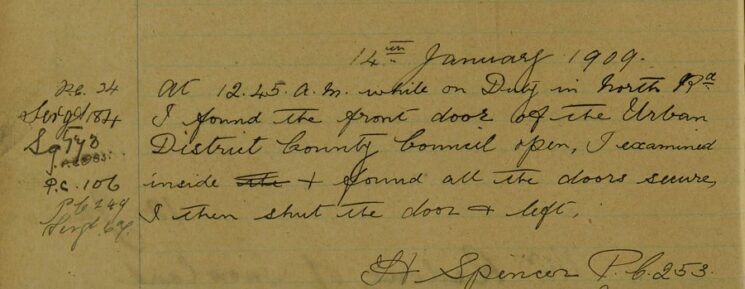 14th January 1909.
P.C. 24
Sergt 184
P.C. 106
P.C 249
At 12.45. A.M. while on Duty in North Rd
I found the front door of the Urban
District County Council open, I examined
inside the + found all the doors secure,
I then shut the door + left.
H Spencer P.C. 253.